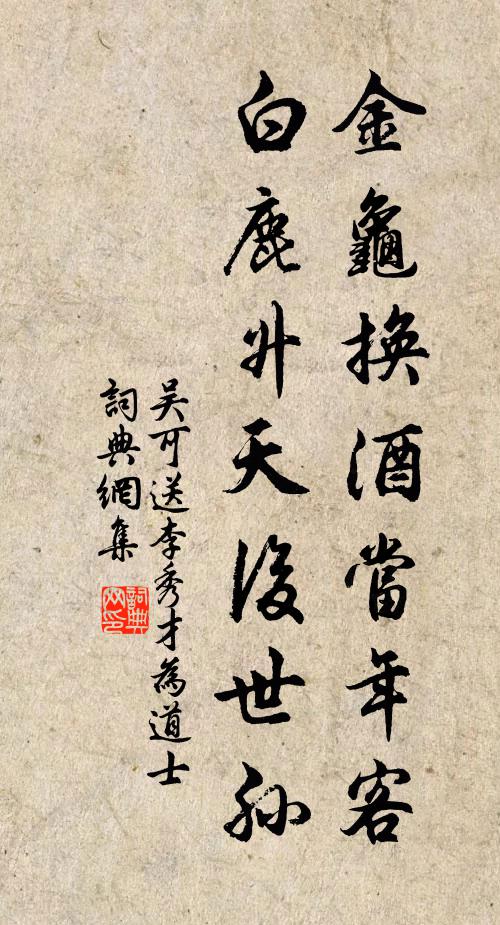 金龜換酒當年客
白鹿升天後世孫
吴可送李秀才為道士
詞典網集
詞典网印